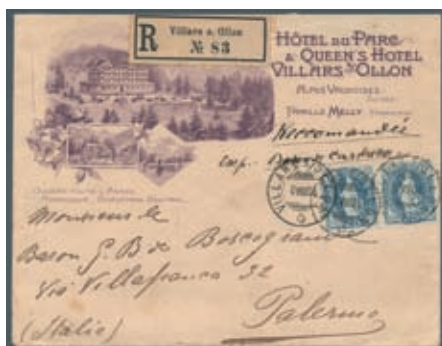 R
Villars s. Ollon
№ 83
HÔTEL DU PARC
& QUEEN'S HOTEL
VILLARS S/ OLLON
ALPES VAUDOISES
FAMILLE MELLY
Reccomandée
VILLARS
Monsieur le
Baron G. B de Boscogrande
Via Villafranca 32
Palermo
(Italie)